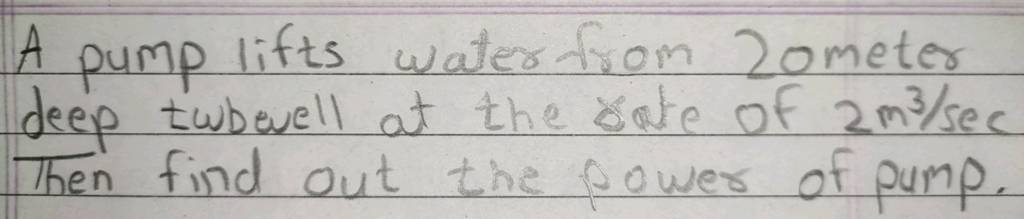 A pump lifts water from 20meter
deep twbewell at the rate of 2m³/sec
Then find out the power of pump.